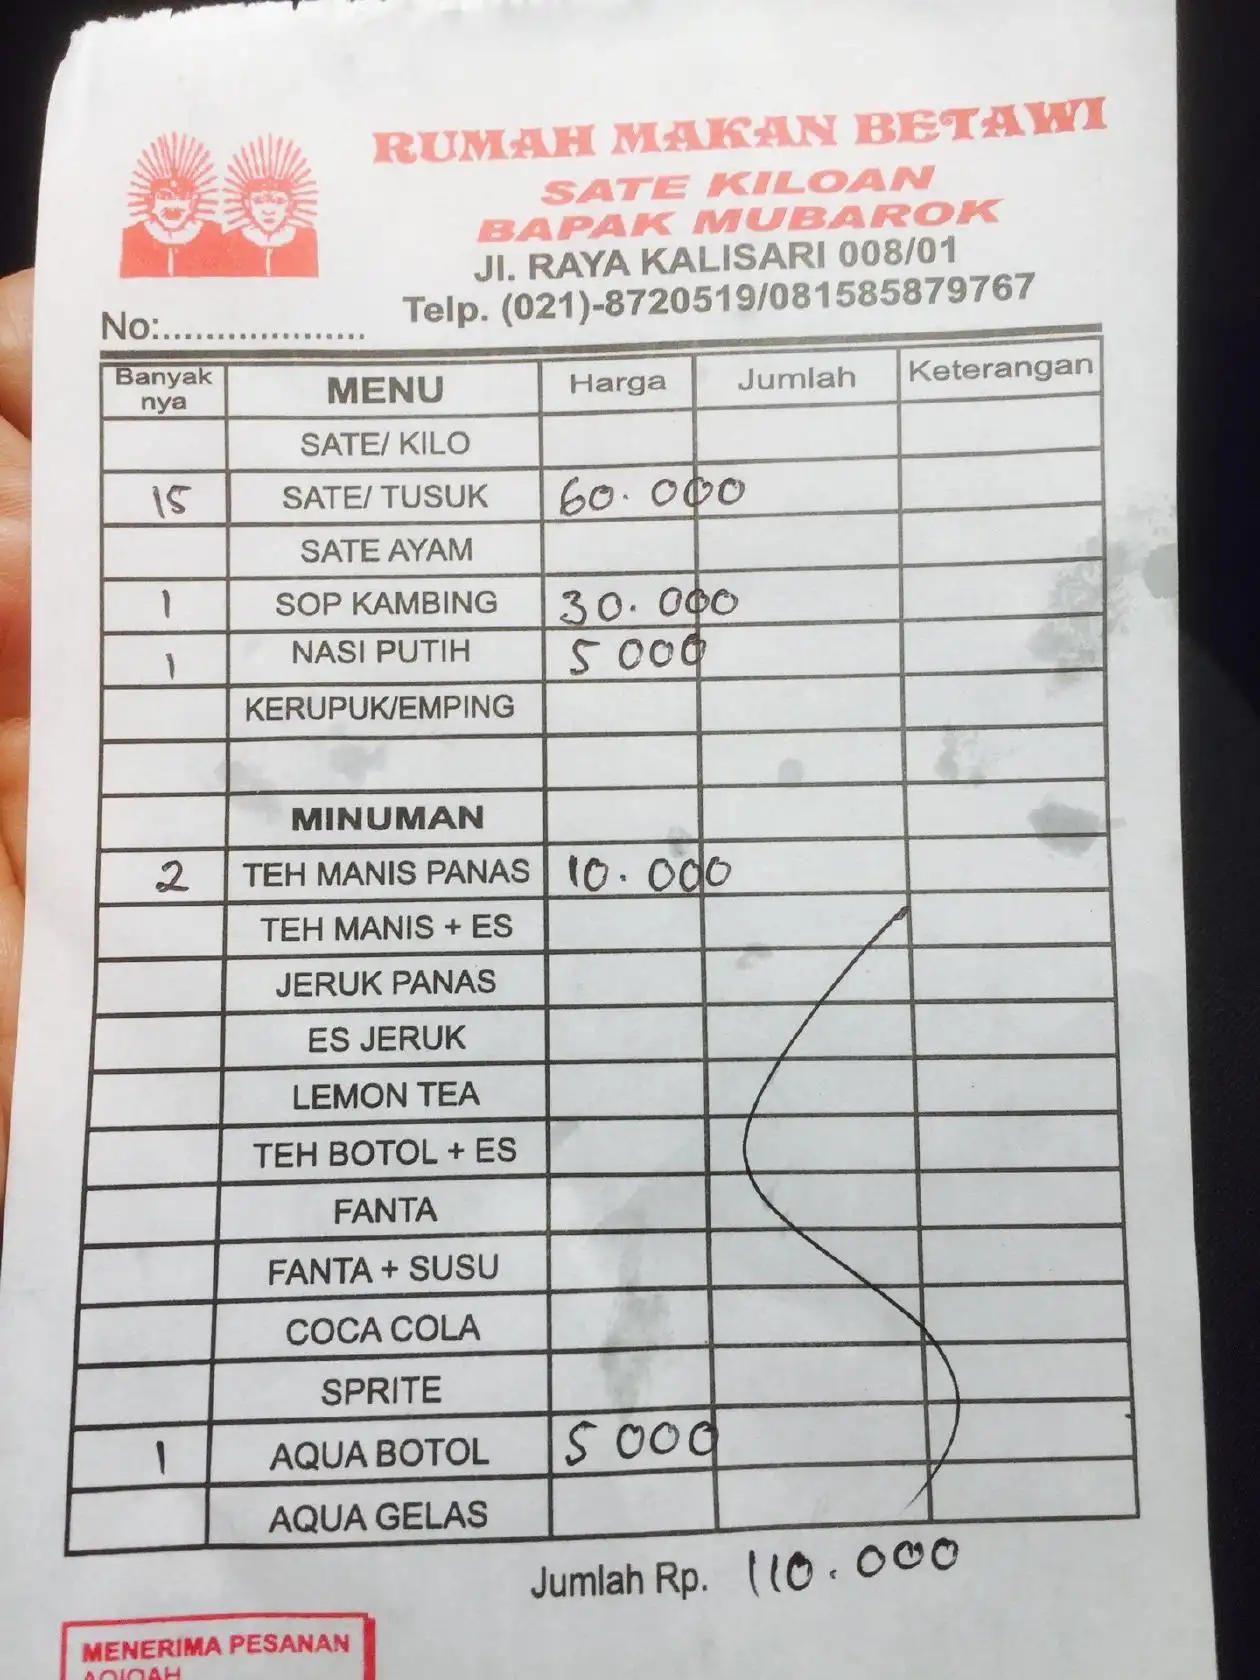 RUMAH MAKAN BETAWI
SATE KILOAN
BAPAK MUBAROK
Jl. RAYA KALISARI 008/01
Telp. (021)-8720519/081585879767
No:....................
Banyak nya MENU Harga Jumlah Keterangan
SATE/ KILO
15 SATE/ TUSUK 60.000
SATE AYAM
1 SOP KAMBING 30.000
1 NASI PUTIH 5 000
KERUPUK/EMPING
MINUMAN
2 TEH MANIS PANAS 10.000
TEH MANIS + ES
JERUK PANAS
ES JERUK
LEMON TEA
TEH BOTOL + ES
FANTA
FANTA + SUSU
COCA COLA
SPRITE
1 AQUA BOTOL 5 000
AQUA GELAS
Jumlah Rp. 110.000
MENERIMA PESANAN
AQIQAH